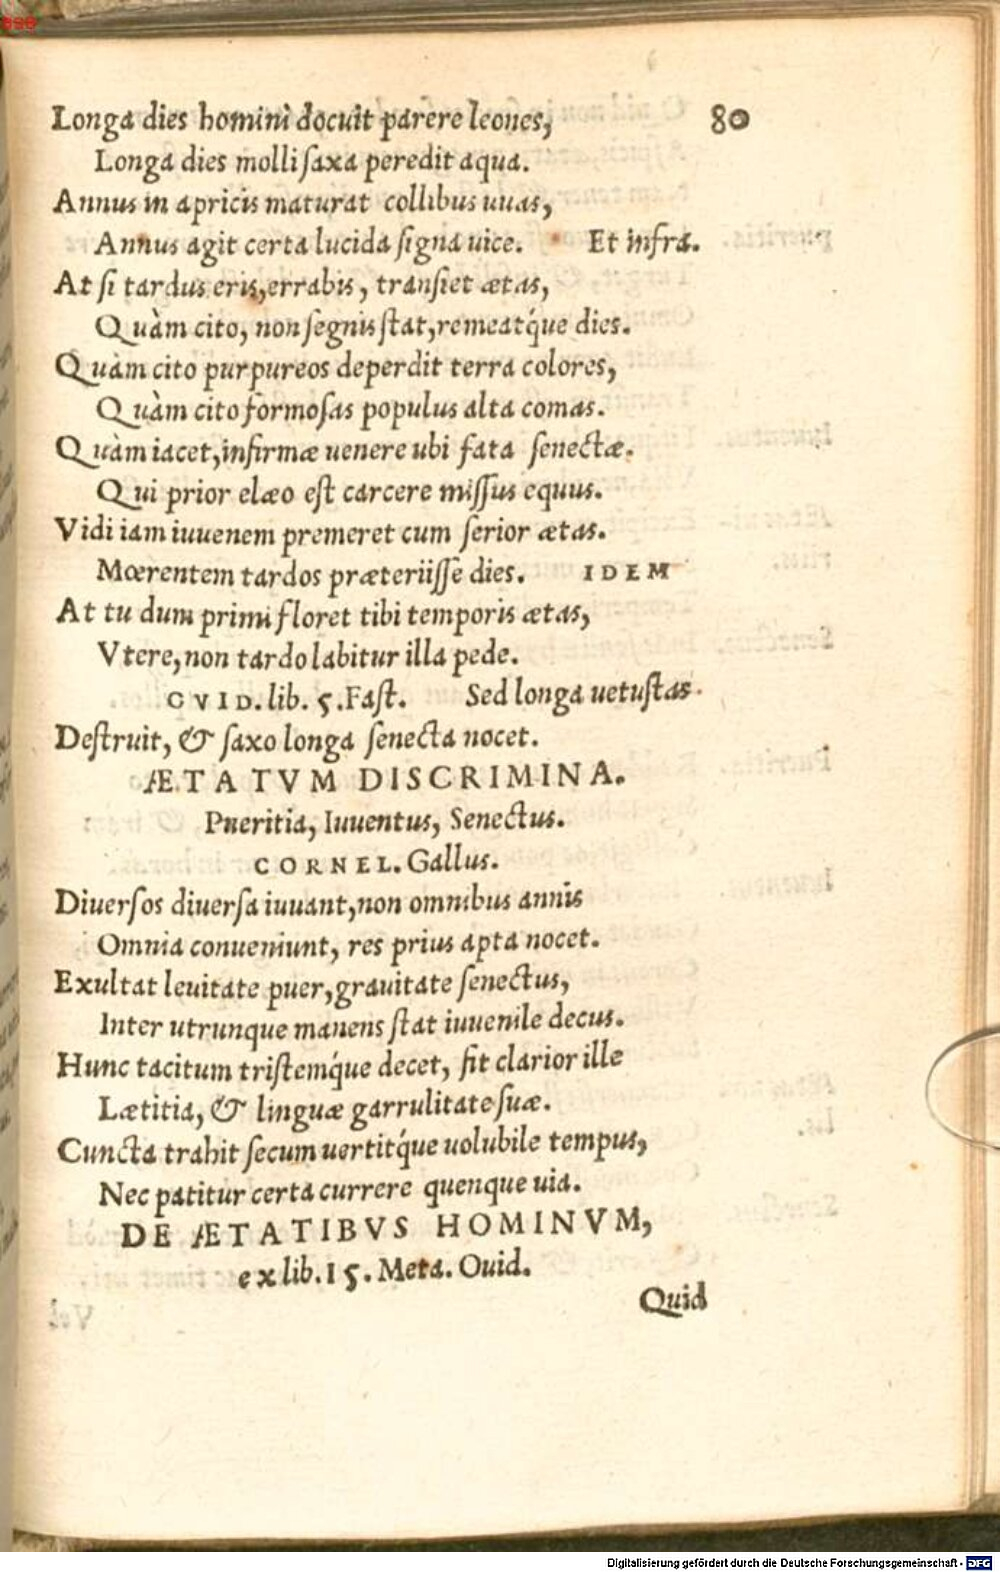 Longa dies homini docuit parere leones, 80
Longa dies molli saxa peredit aqua.
Annus in apricis maturat collibus uuas,
Annus agit certa lucida signa uice. Et infra.
At si tardus eris, errabis, transiet ætas,
Quàm cito, non segnis stat, remeatq́ue dies.
Quàm cito purpureos deperdit terra colores,
Quàm cito formosas populus alta comas.
Quàm iacet, infirmæ uenere ubi fata senectæ.
Qui prior elæo est carcere missus equus.
Vidi iam iuuenem premeret cum serior ætas.
Mœrentem tardos præteriisse dies. IDEM
At tu dum primi floret tibi temporis ætas,
Vtere, non tardo labitur illa pede.
OVID. lib. 5. Fast. Sed longa uetustas.
Destruit, & saxo longa senecta nocet.
ÆTATVM DISCRIMINA.
Pueritia, Iuuentus, Senectus.
CORNEL. Gallus.
Diuersos diuersa iuuant, non omnibus annis
Omnia conueniunt, res prius apta nocet.
Exultat leuitate puer, grauitate senectus,
Inter utrunque manens stat iuuenile decus.
Hunc tacitum tristemq́ue decet, fit clarior ille
Lætitia, & linguæ garrulitate suæ.
Cuncta trahit secum uertitq́ue uolubile tempus,
Nec patitur certa currere quenque uia.
DE ÆTATIBVS HOMINVM,
ex lib. 15. Meta. Ouid.
Quid
Digitalisierung gefördert durch die Deutsche Forschungsgemeinschaft - DFG